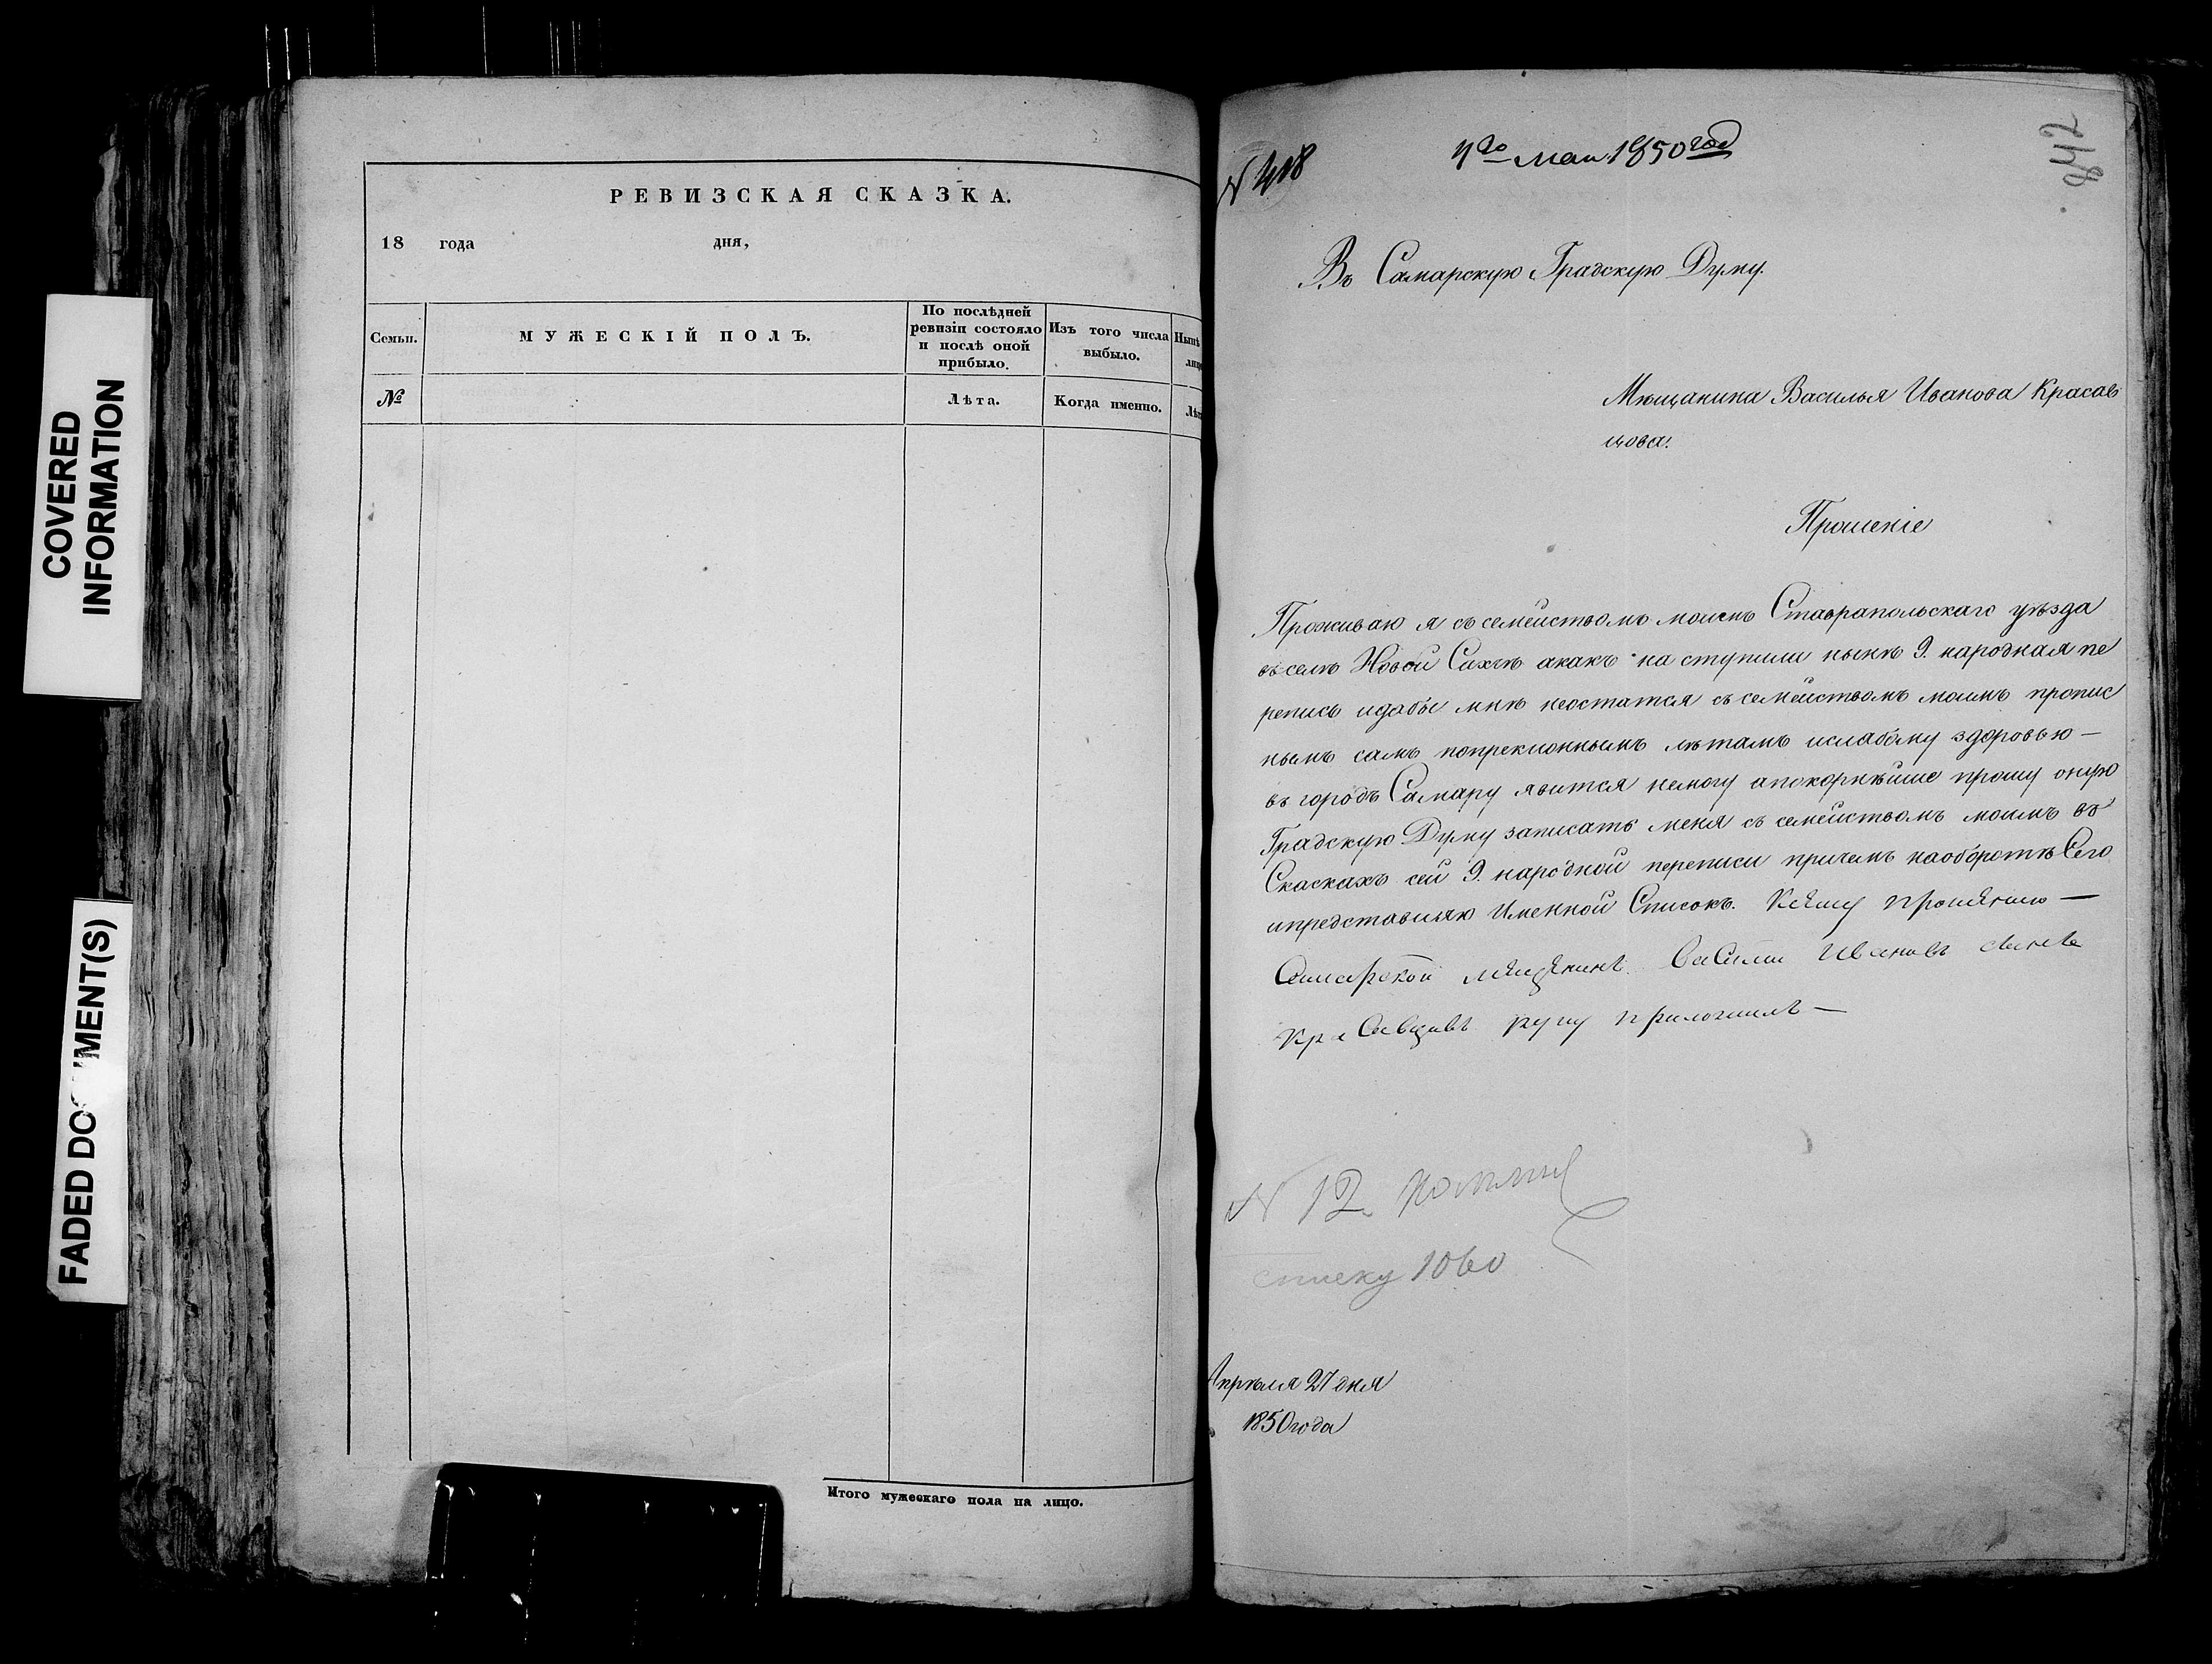 COVERED
INFORMATION
FADED DOCUMENT(S)
РЕВИЗСКАЯ СКАЗКА.
18 года дня,
Семьи.
МУЖЕСКІЙ ПОЛЪ.
По послѣдней
ревизіи состояло
и послѣ оной
прибыло.
Изъ того числа
выбыло.
Нынѣ
лиц
№
Лѣта.
Когда именно.
Лѣт
Итого мужескаго пола на лицо.
842
N 418
4го мая 1850 год
Въ Самарскую Градскую Думу.
Мѣщанина Василья Иванова Красав
цова.
Прошеніе
Проживаю я съ семействомъ моимъ Ставрапольскаго уѣзда
въ селѣ Новой Сахчѣ акакъ на ступили нынѣ 9. народная пе
репись идабы мнѣ неостатся съ семействомъ моимъ пропис
нымъ самъ попреклоннымъ лѣтамъ ислабому здоровью —
въ городъ Самару явится немогу апокорнѣйше прошу оную
Градскую Думу записать меня съ семействомъ моимъ въ
Сказкахъ сей 9. народной переписи причемъ наоборотѣ Сего
ипредставляю Именной Списокъ. Ксему прошению —
Самарской мещанинъ Василй Ивановъ сынъ
Красавцавъ руку приложилъ —
N 12.
списку 1060
Апрѣля 27 дня
1850 года